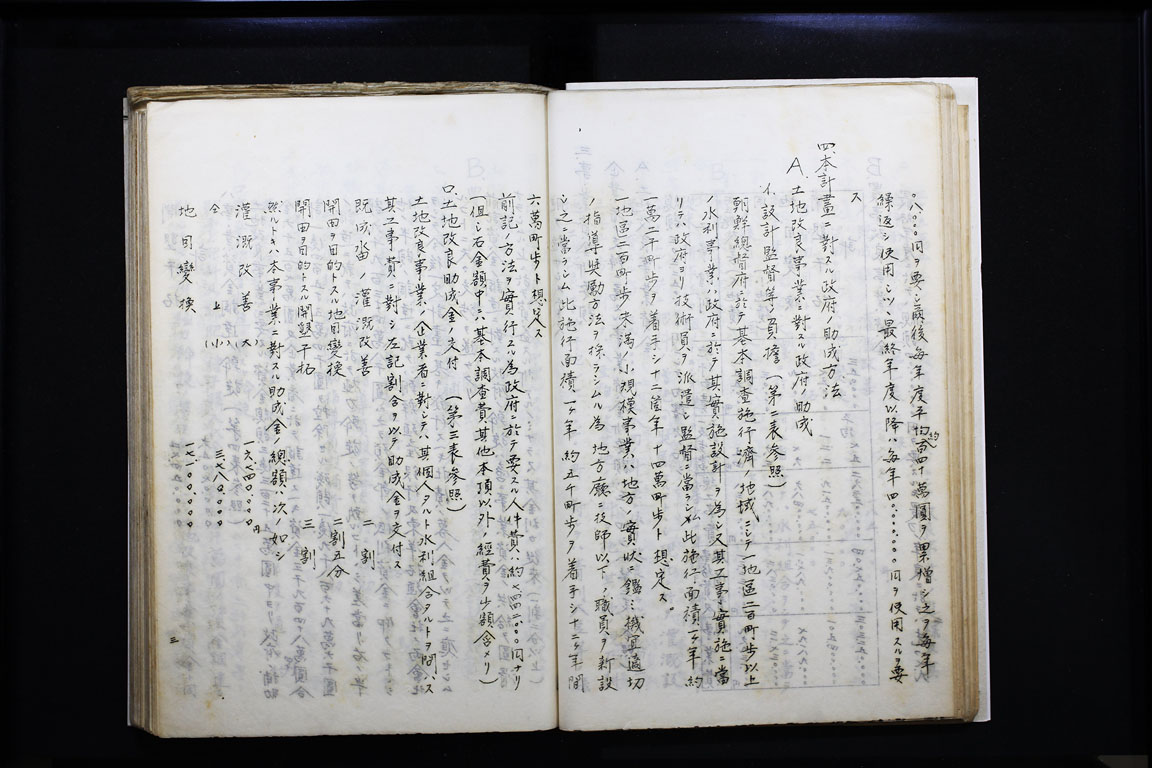 〇八〇〇〇円ヲ要シ前後毎年度平均約百四十萬圓ヲ累増シ之ヲ毎年
繰返シ使用シツヽ最終年度以降ハ毎年四〇〇〇〇〇〇円ヲ使用スルヲ要
ス
四、本計畫ニ對スル政府ノ助成方法
A、土地改良ノ事業ニ對スル政府ノ助成
イ、設計監督等ノ負擔(第二表参照)
朝鮮總督府ニ於テ基本調査施行濟ノ地域ニシテ一地區二百町歩以上
ノ水利事業ハ政府ニ於テ其實施設計ヲ為シ又其工事ノ實施ニ當
リテハ政府ヨリ技術員ヲ派遣シ監督ニ當ラシム此施行面積一ケ年約
一萬二千町歩ヲ着手シ十二箇年十四萬町歩ト想定ス。
一地區二百町歩未満ノ小規模事業ハ地方ノ實状ニ鑑ミ機宜適切
ノ指導奨勵方法ヲ採ラシムル為地方廳ニ技師以下ノ職員ヲ新設
シ之ニ當ラシム此施行面積一ケ年約五千町歩ヲ着手シ十二ケ年間
六萬町歩ト想定ス
前記ノ方法ヲ實行スル為政府ニ於テ要スル人件費ハ約七四二〇〇〇円ナリ
(但シ右金額中ニハ基本調査費其他本項以外ノ經費ヲ少額含メリ)
ロ、土地改良助成金ノ交付(第三表参照)
土地改良ノ事業ノ企業者ニ對シテハ其個人タルト水利組合タルトヲ問ハス
其工事費ニ對シ左記割合ヲ以テ助成金ヲ交付ス
既成畓ノ灌漑改善 二割
開田ヲ目的トスル地目變換 二割五分
開田ヲ目的トスル開墾干拓 三割
然ルトキハ本事業ニ對スル助成金ノ總額ハ次ノ如シ
灌漑改善(大) 一六七四〇〇〇〇円
仝上(小) 三七八〇〇〇〇
地目變換 一七一〇〇〇〇〇
三